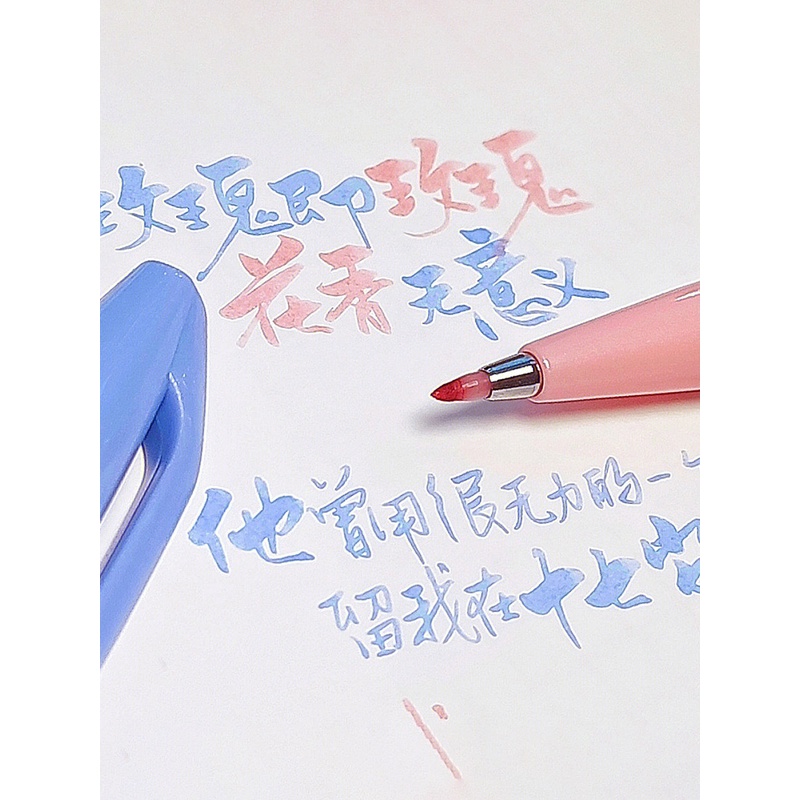 玫瑰即玫瑰
花香无意义
他曾用很无力的一
留我在十七